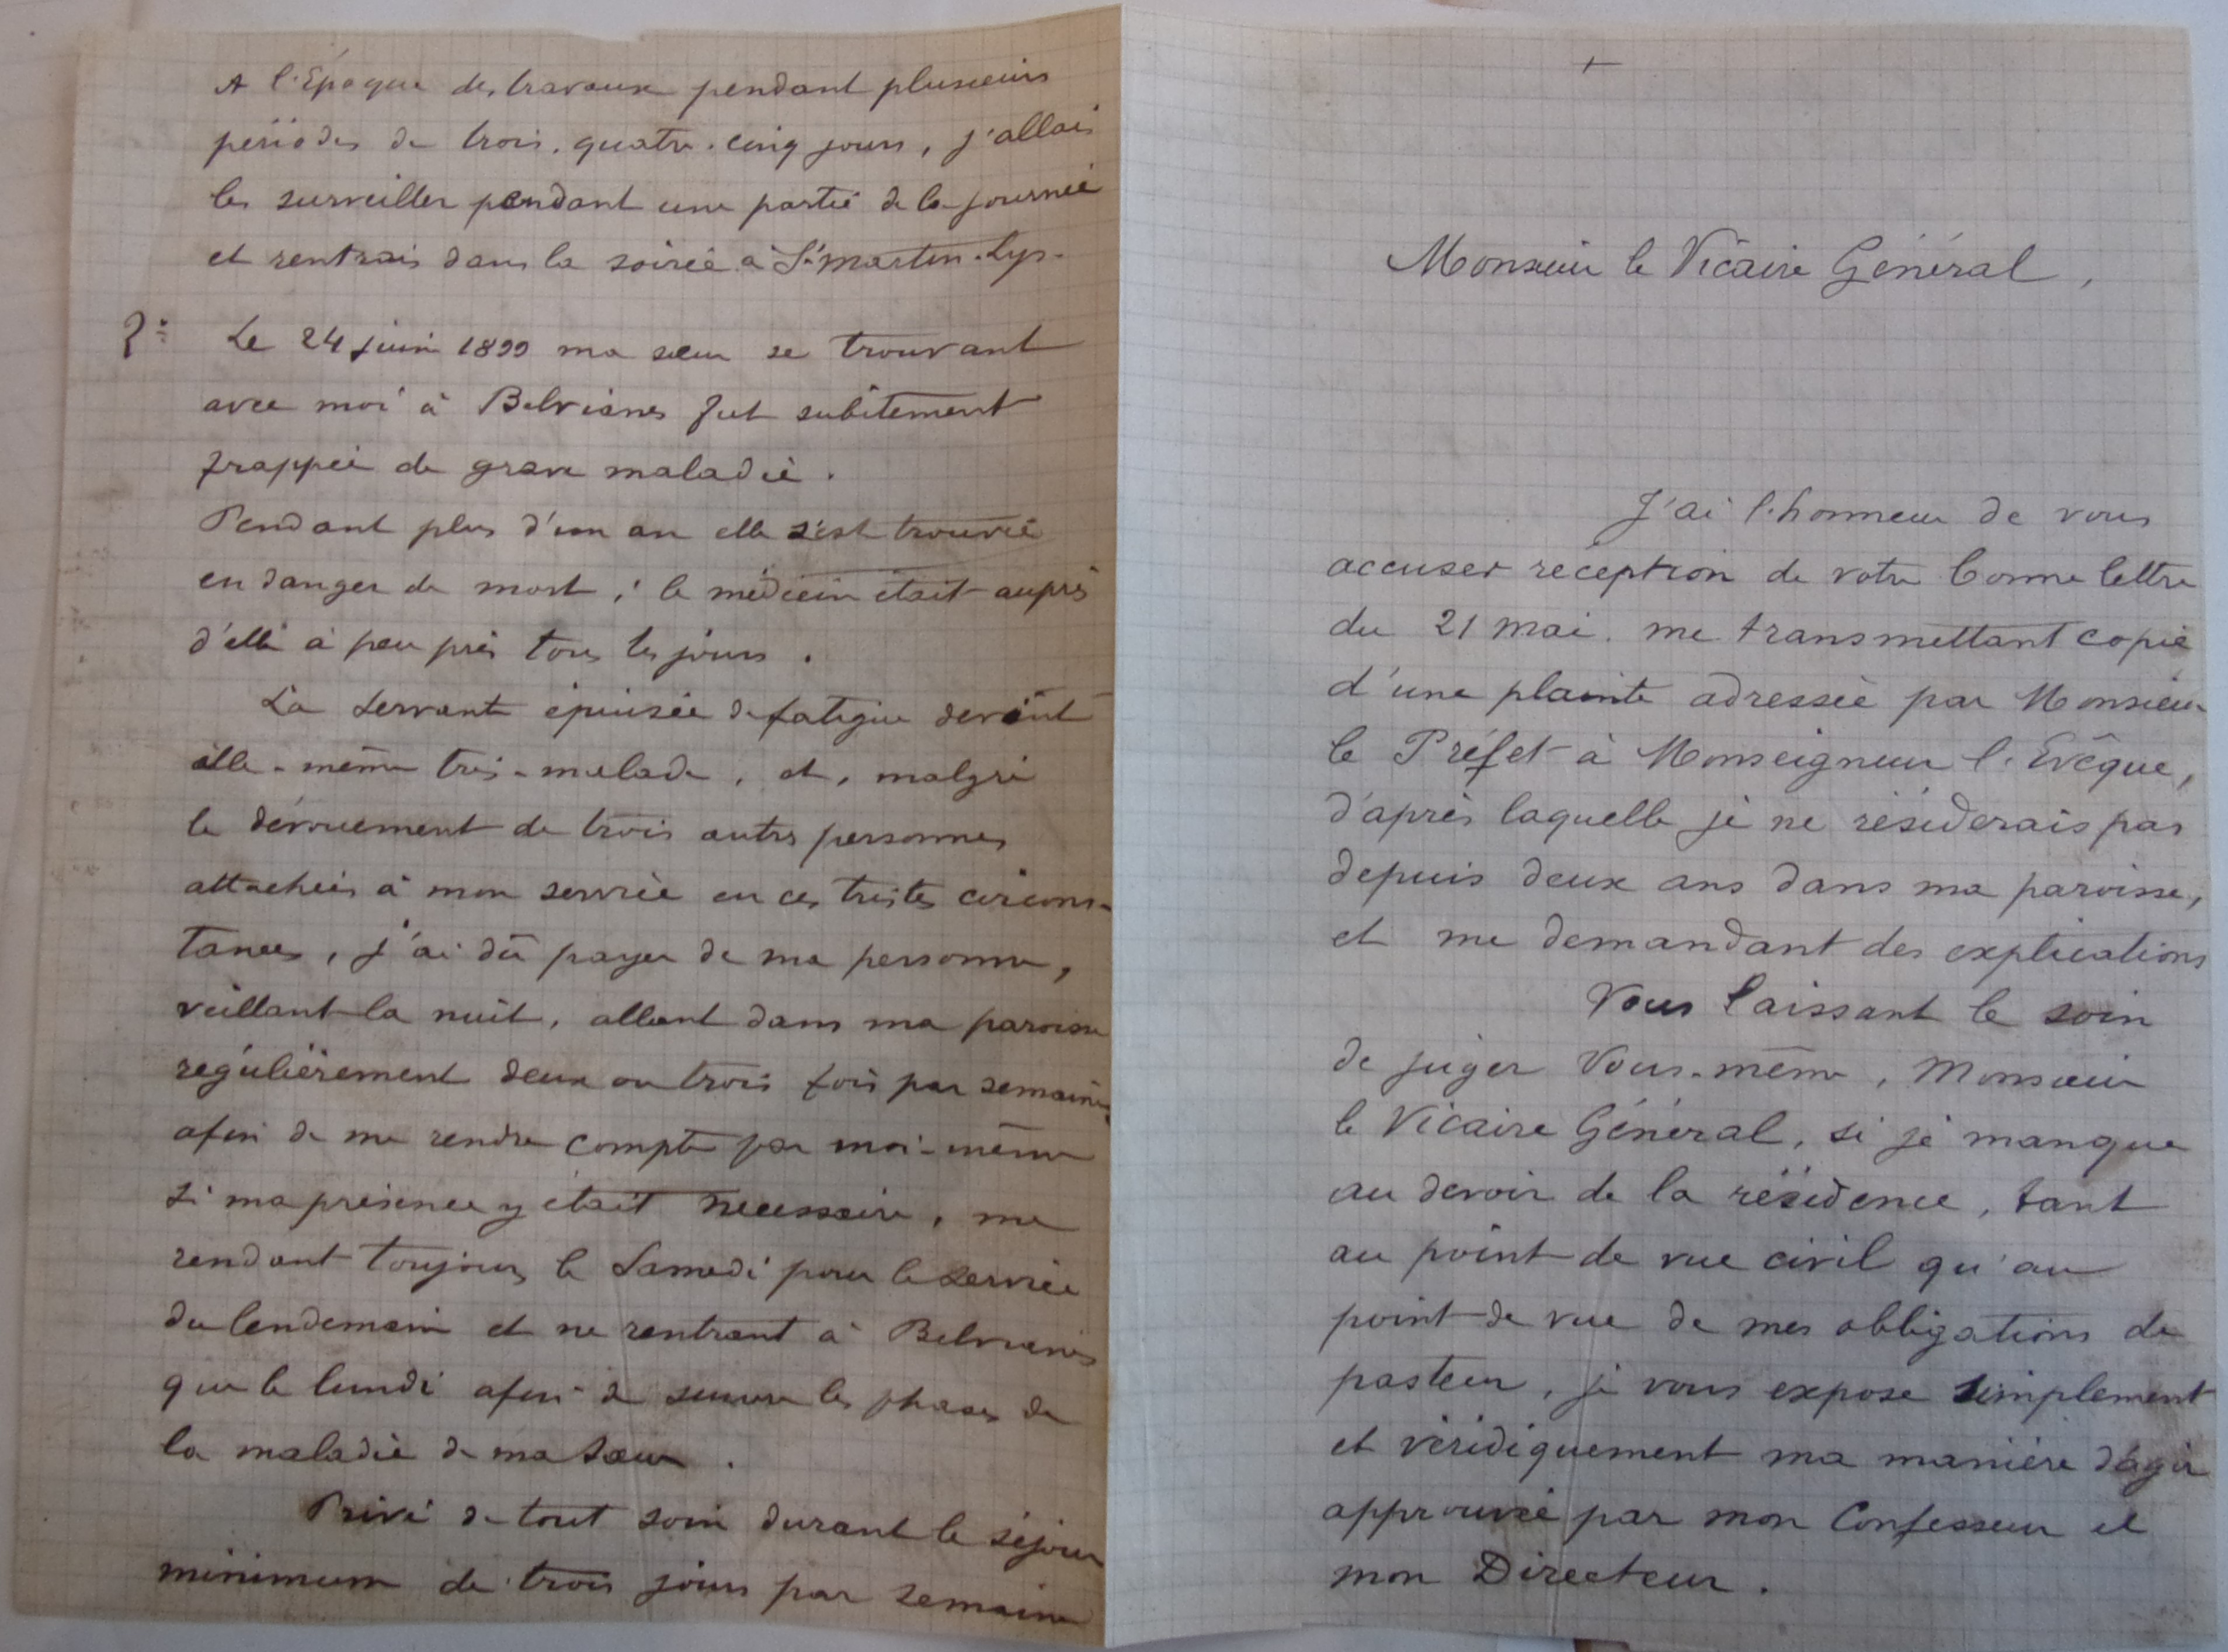 A l'Époque des travaux pendant plusieurs
périodes de trois, quatre, cinq jours, j'allais
les surveiller pendant une partie de la journée
et rentrais dans la soirée à St martin-Lys.
2° Le 24 juin 1899 ma sœur se trouvant
avec moi à Belvianes fut subitement
frappée de grave maladie.
Pendant plus d'un an elle s'est trouvée
en danger de mort ; le médecin était auprès
d'elle à peu près tous les jours.
La servante épuisée de fatigue devint
elle-même très-malade, et, malgré
le dévouement de trois autres personnes
attachées à mon service en ces tristes circons-
tances, j'ai dû payer de ma personne,
veillant la nuit, allant dans ma paroisse
régulièrement deux ou trois fois par semaine
afin de me rendre compte par moi-même
si ma présence y était necessaire, me
rendant toujours le Samedi pour le service
du lendemain et ne rentrant à Belvianes
que le lundi afin de suivre les phases de
la maladie de ma sœur.
Privé de tout soin durant le séjour
minimum de trois jours par semaine
+
Monsieur le Vicaire Général,
J'ai l'honneur de vous
accuser réception de votre bonne lettre
du 21 mai. me transmettant copie
d'une plainte adressée par Monsieur
le Préfet à Monseigneur l'Evêque,
d'après laquelle je ne résiderais pas
depuis deux ans dans ma paroisse,
et me demandant des explications
Vous laissant le soin
de juger Vous-même, Monsieur
le Vicaire Général, si je manque
au devoir de la résidence, tant
au point de vue civil qu'au
point de vue de mes obligations de
pasteur, je vous expose simplement
et véridiquement ma manière d'agir
approuvée par mon Confesseur et
mon Directeur.